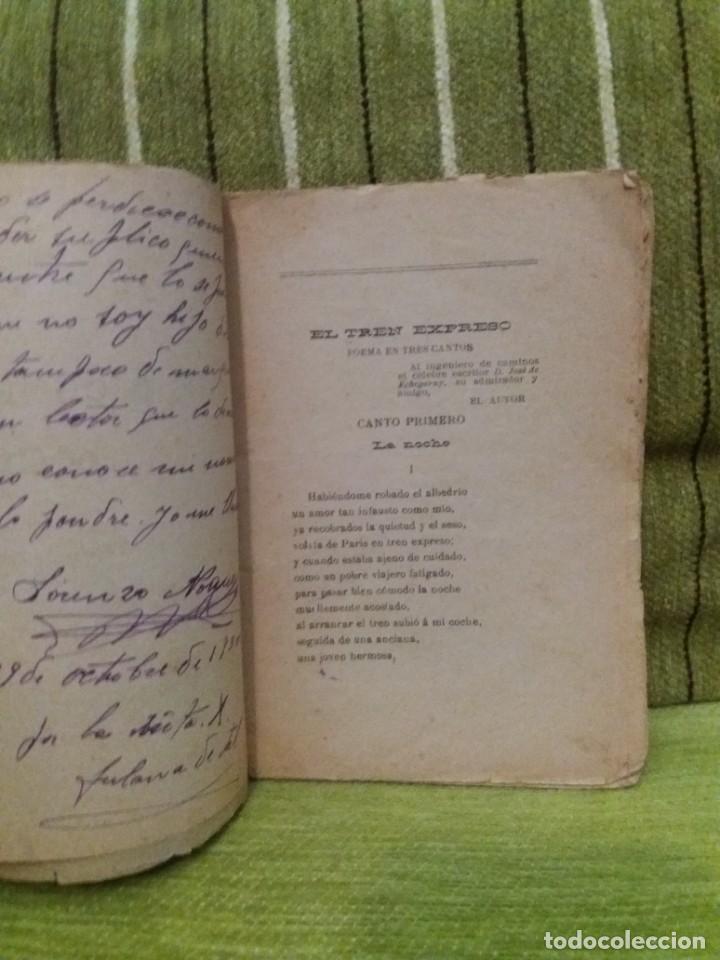 si perdiese como
suplico que
que lo se
no soy hijo de
tampoco de
lector que lo
no conoce mi
lo pondre. Yo me
Lorenzo
9 de octubre de
por la nota. X.
Fulana de tal
EL TREN EXPRESO
POEMA EN TRES CANTOS
Al ingeniero de caminos
el célebre escritor D. José de
Echegaray, su admirador y
amigo,
EL AUTOR
CANTO PRIMERO
La noche
I
Habiéndome robado el albedrío
un amor tan infausto como mío,
ya recobrados la quietud y el seso,
volvía de París en tren expreso;
y cuando estaba ajeno de cuidado,
como un pobre viajero fatigado,
para pasar bien cómodo la noche
muellemente acostado,
al arrancar el tren subió á mi coche,
seguida de una anciana,
una joven hermosa,
todocoleccion.net